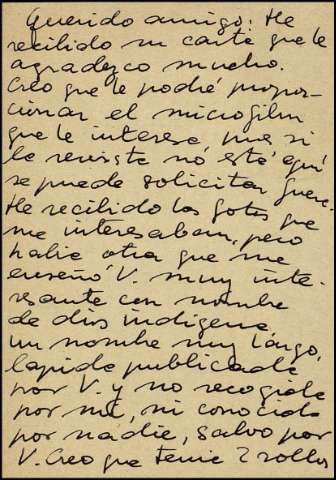 Querido amigo: He
recibido su carta que le
agradezco mucho.
Creo que le podré propor-
cionar el microfilm
que le interesa, pues si
la revista no está aquí
se puede solicitar fuera.
He recibido las fotos que
me interesaban, pero
había otra que me
enseñó V. muy inte-
resante con nombre
de dios indígena
un nombre muy largo,
lápida publicada
por V. y no recogida
por mí, ni conocida
por nadie, salvo por
V. Creo que tenía 2 rollos